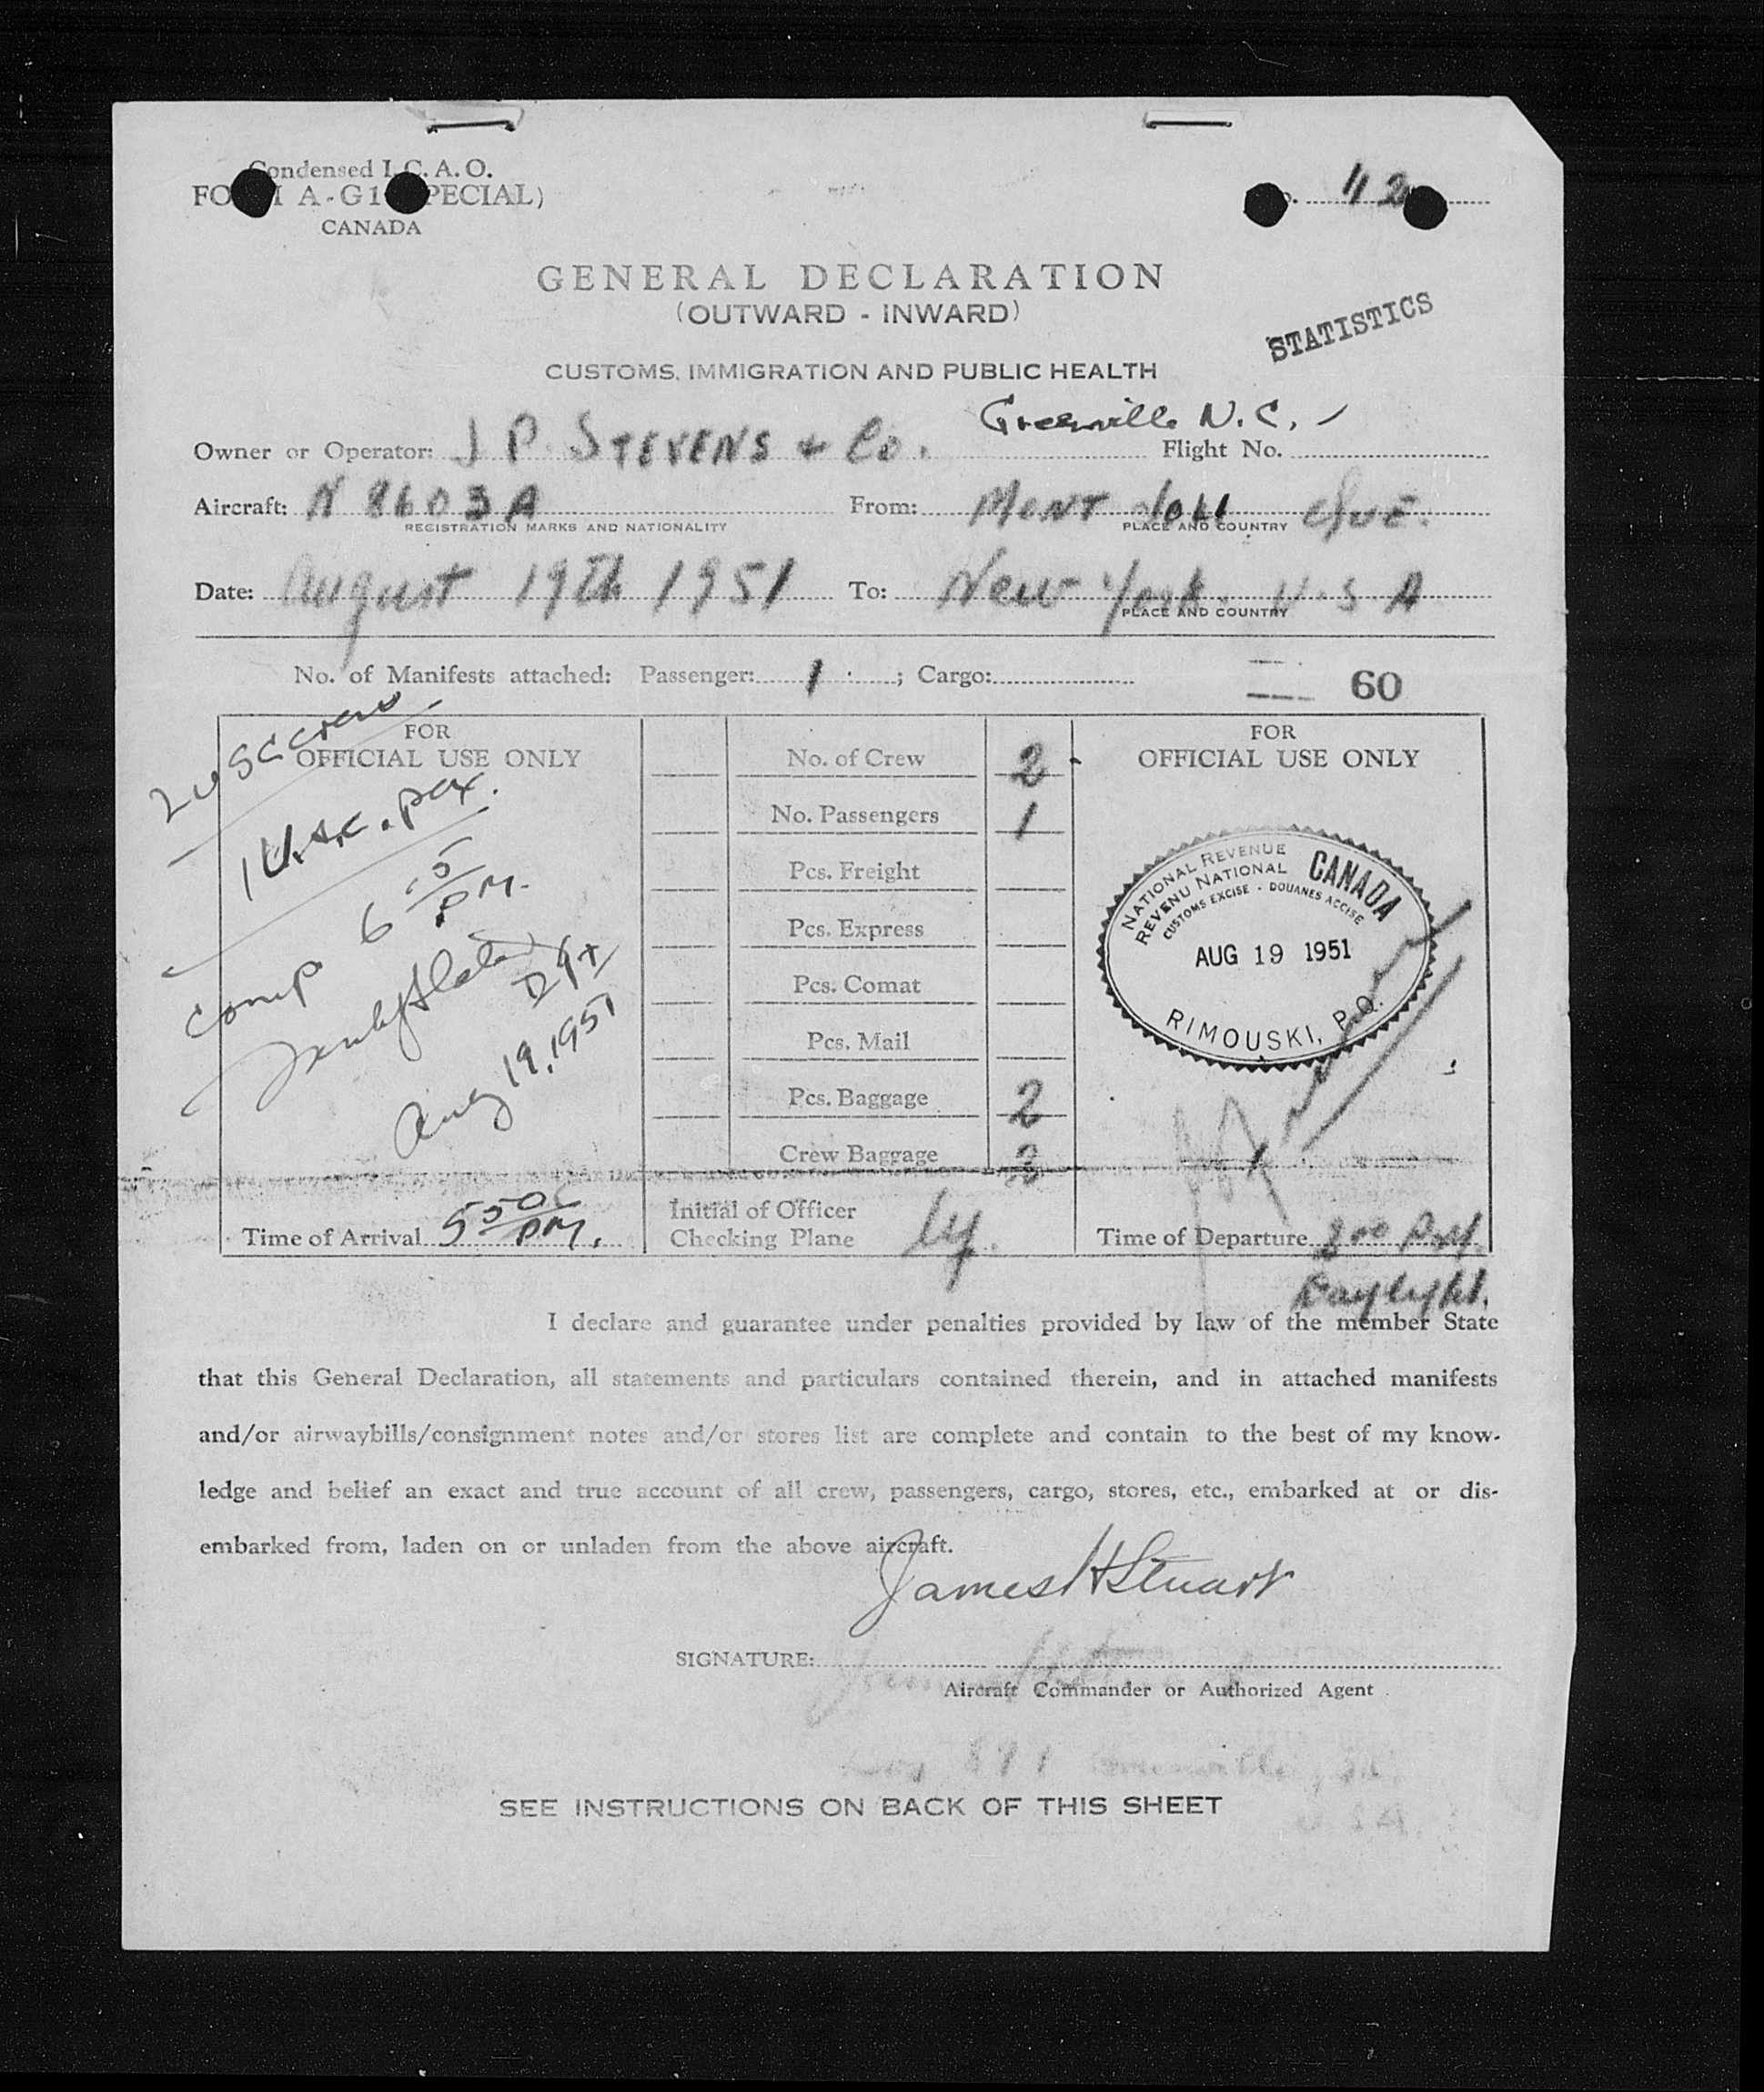 Condensed I.C.A.O.
FORM A-G1 (SPECIAL)
CANADA
No. 112
GENERAL DECLARATION
(OUTWARD - INWARD)
STATISTICS
CUSTOMS, IMMIGRATION AND PUBLIC HEALTH
Greenville N.C.
Owner or Operator: J P. STEVENS & Co. Flight No.
Aircraft: N 8603A From: MONT JOLI QUE.
REGISTRATION MARKS AND NATIONALITY PLACE AND COUNTRY
Date: August 19th 1951 To: New York. U.S A
PLACE AND COUNTRY
No. of Manifests attached: Passenger: 1 ; Cargo:
60
FOR
OFFICIAL USE ONLY
2 USC crew
1 U.S.C. pax.
Comp 6 15 P.M.
Aug 19, 1951
Time of Arrival 5 50 PM.
No. of Crew 2
No. Passengers 1
Pcs. Freight
Pcs. Express
Pcs. Comat
Pcs. Mail
Pcs. Baggage 2
Crew Baggage 3
Initial of Officer
Checking Plane
FOR
OFFICIAL USE ONLY
NATIONAL REVENUE
REVENU NATIONAL
CANADA
CUSTOMS EXCISE - DOUANES ACCISE
AUG 19 1951
RIMOUSKI, P.Q.
Time of Departure 8 00 P.M.
Daylight.
I declare and guarantee under penalties provided by law of the member State
that this General Declaration, all statements and particulars contained therein, and in attached manifests
and/or airwaybills/consignment notes and/or stores list are complete and contain to the best of my know-
ledge and belief an exact and true account of all crew, passengers, cargo, stores, etc., embarked at or dis-
embarked from, laden on or unladen from the above aircraft.
James H Stuart
SIGNATURE:
Aircraft Commander or Authorized Agent
SEE INSTRUCTIONS ON BACK OF THIS SHEET